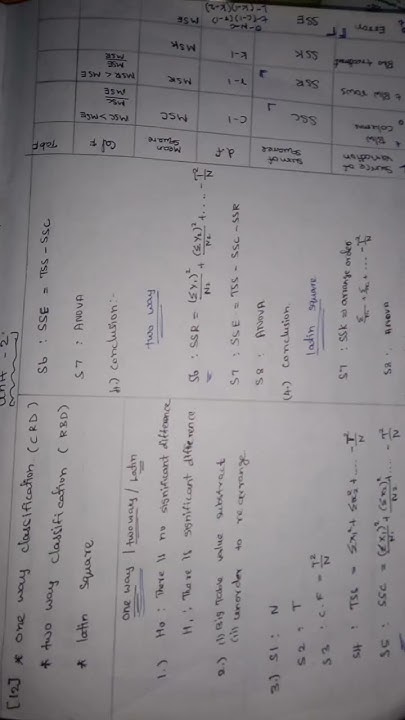 Unit - 2
[12] * one way clascification (CRD)
* two way classification (RBD)
* latin square
one way / two way / Latin
1.) H0 : There is no significant difference
H1 : There is significant difference
2.) (i) Big Table value substract
(ii) unorder to rearrange
3.) S1 : N
S2 : T
S3 : C.F = T²/N
S4 : TSS = Σx₁² + Σx₂² + .... - T²/N
S5 : SSC = (Σx₁)²/N₁ + (Σx₂)²/N₂ + .... - T²/N
S6 : SSE = TSS - SSC
S7 : ANOVA
4.) conclusion:-
two way
S6 : SSR = (Σy₁)²/N₁ + (Σy₂)²/N₂ + .... - T²/N
S7 : SSE = TSS - SSC - SSR
S8 : ANOVA
(4.) conclusion
latin square
S7 : SSK = arrange order
S8 : ANOVA
Source of variation Sum of squares d.f Mean square Cal f Tab f
Btw columns SSC C-1 MSC MSC>MSE MSC/MSE
Btw rows SSR r-1 MSR MSR<MSE MSE/MSR
Btw treatment SSK k-1 MSK
Error SSE MSE